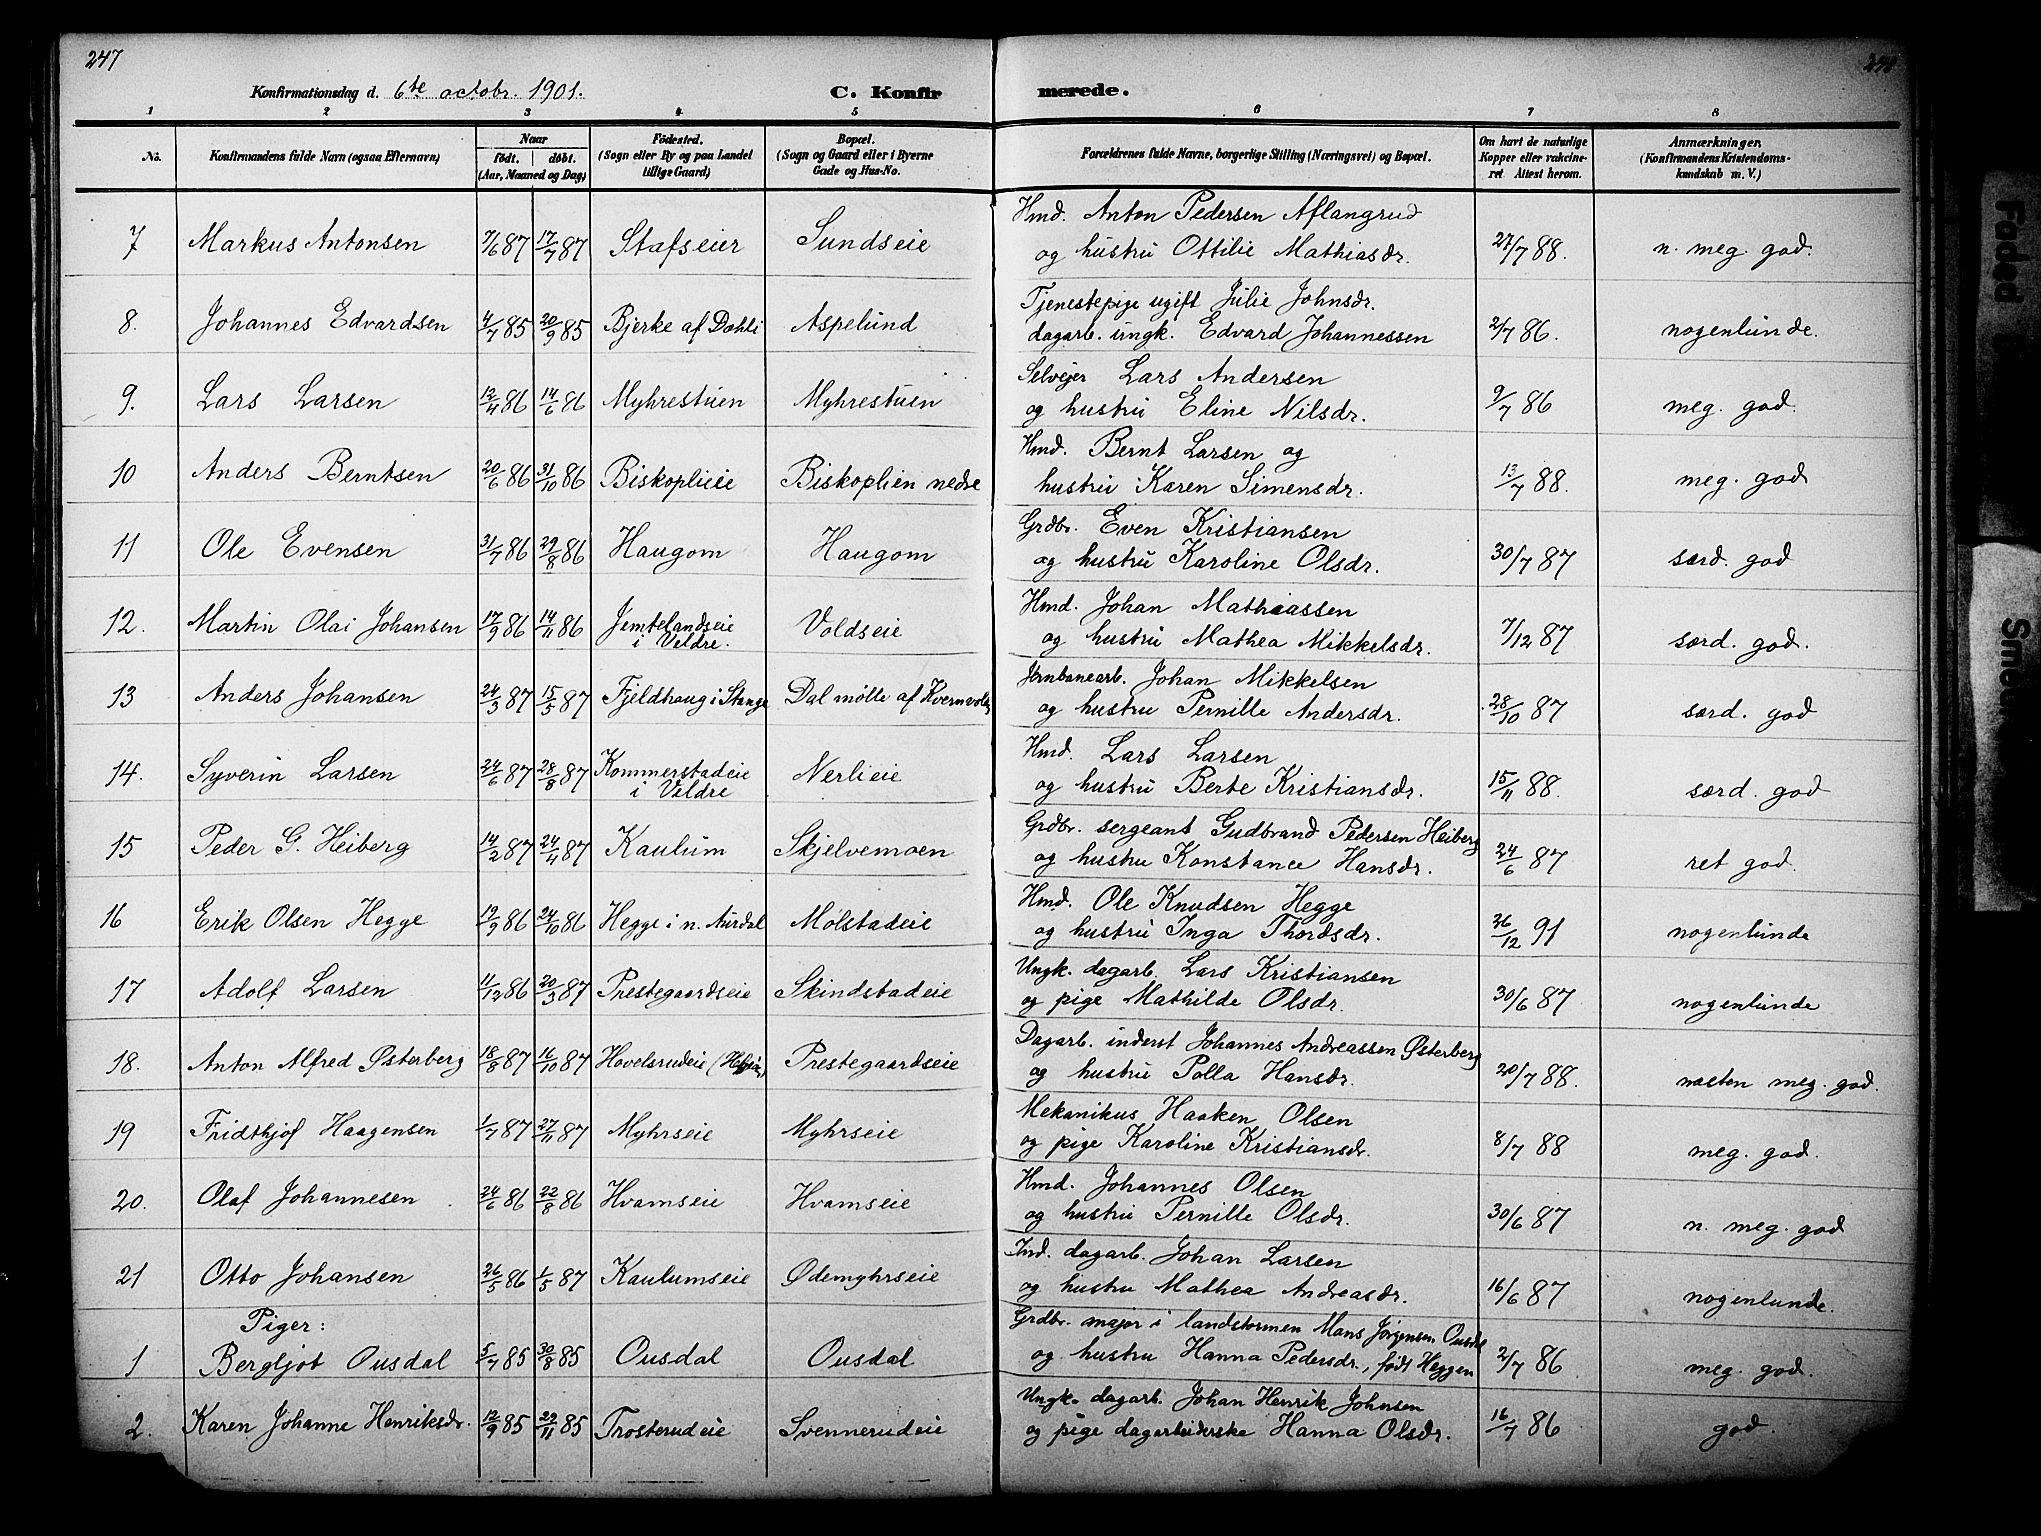 247
248
Konfirmationsdag d. 6te octobr. 1901.
C. Konfir
merede.
1 2 3 4 5 6 7 8
No.
Konfirmandens fulde Navn (ogsaa Efternavn)
Naar
født. døbt.
(Aar, Maaned og Dag)
Fødested.
(Sogn eller By og paa Landet
tillige Gaard)
Bopæl.
(Sogn og Gaard eller i Byerne
Gade og Hus-No.
Forældrenes fulde Navne, borgerlige Stilling (Næringsvei) og Bopæl.
Om havt de naturlige
Kopper eller vakcine-
ret Attest herom.
Anmærkninger.
(Konfirmandens Kristendoms-
kundskab m. V.)
Hmd. Anton Pedersen Aflangrud
7 Markus Antonsen 7/6 87 17/7 87 Stafseier Sundseie og hustru Ottilie Mathiasdr. 27/7 88. n. meg. god.
Tjenestepige ugift Julie Johnsdr.
8. Johannes Edvardsen 4/7 85 20/9 85 Bjerke af Dahli Aspelund dagarb. ungk. Edvard Johannessen 2/7 86. nogenlunde.
Selvejer Lars Andersen
9. Lars Larsen 12/4 86 14/6 86 Myhrestuen Myhrestuen og hustru Eline Nilsdr. 9/7 86 meg. god.
Hmd. Bernt Larsen og
10 Anders Berntsen 20/6 86 31/10 86 Biskoplieie Biskoplien nedre hustru Karen Simensdr. 13/7 88. meg. god
Grdbr. Even Kristiansen
11 Ole Evensen 31/7 86 29/8 86 Haugom Haugom og hustru Karoline Olsdr. 30/7 87 særd. god
Hmd. Johan Mathiassen
12. Martin Olai Johansen 17/9 86 14/11 86 Jemtelandseie Voldseie og hustru Mathea Mikkelsdr. 7/12 87 særd. god.
i Veldre.
Jernbanearb. Johan Mikkelsen
13 Anders Johansen 24/3 87 15/5 87 Fjeldhaug i Stange Dal mølle af og hustru Pernille Andersdr. 28/10 87 særd. god
Hmd. Lars Larsen
14. Syverin Larsen 24/6 87 28/8 87 Kommerstadeie Nerlieie og hustru Berte Kristiansdr. 15/11 88. særd. god
i Veldre
Grdbr. sergeant Gudbrand Pedersen Heiberg
15 Peder G. Heiberg 14/2 87 24/4 87 Kaulum Skjelvemoen og hustru Konstance Hansdr. 24/6 87 ret god.
Hmd. Ole Knudsen Hegge
16 Erik Olsen Hegge 19/9 86 24/10 86 Hegge i n. Aurdal Mølstadeie og hustru Inga Thordsdr. 26/12 91 nogenlunde
Ungk. dagarb. Lars Kristiansen
17 Adolf Larsen 11/12 86 20/3 87 Prestegaardseie Skindstadeie og pige Mathilde Olsdr. 30/6 87 nogenlunde
Dagarb. inderst Johannes Andreassen Østerberg
18. Anton Alfred Østerberg 18/8 87 16/10 87 Hovelsrudeie Prestegaardseie og hustru Polla Hansdr. 20/7 88. næsten meg. god.
Mekanikus Haaken Olsen
19 Fridthjof Haagensen 1/7 87 27/11 87 Myhrseie Myhrseie og pige Karoline Kristiansdr. 8/7 88 meg. god.
Hmd. Johannes Olsen
20. Olaf Johannesen 24/6 86 22/8 86 Hvamseie Hvamseie og hustru Pernille Olsdr. 30/6 87 n. meg. god
Ind. dagarb. Johan Larsen
21 Otto Johansen 26/5 86 1/5 87 Kaulumseie Ødemyhrseie og hustru Mathea Andreasdr. 16/6 87 nogenlunde.
Piger:
Grdbr. major i landstormen Mons Jørgensen Ousdal
1 Bergljot Ousdal 5/7 85 30/8 85 Ousdal Ousdal og hustru Hanna Pedersdr., født Heggen 2/7 86 meg. god.
Ungk. dagarb. Johan Henrik Johnsen
2. Karen Johanne Henriksdr. 12/9 85 29/11 85 Trosterudeie Svennerudeie og pige dagarbeiderske Hanna Olsdr. 16/7 86 god.
Faded